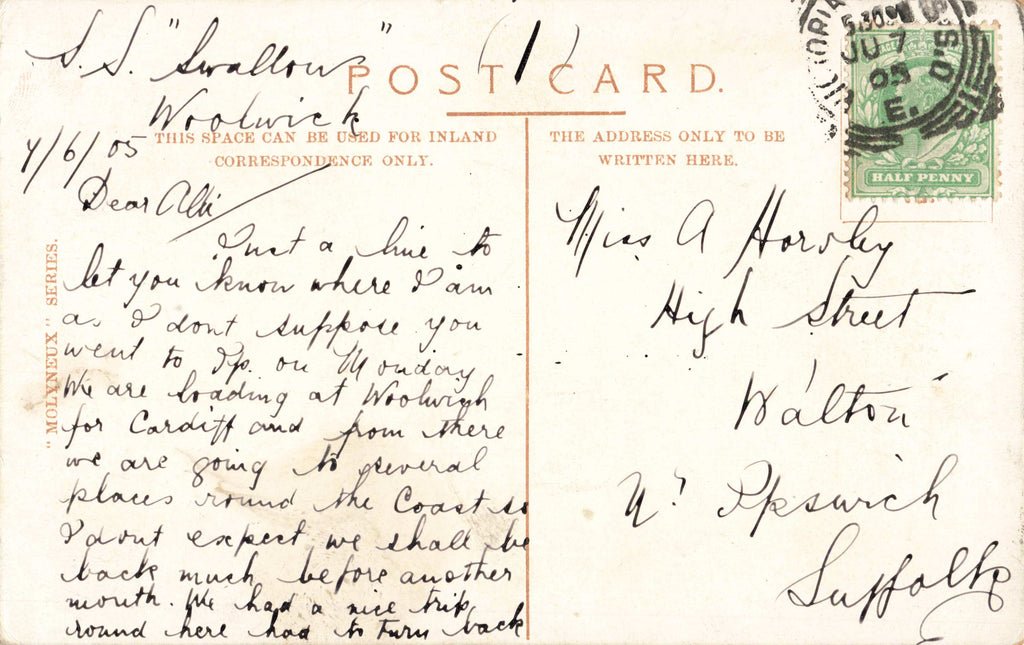 S.S. "Swallow"
Woolwick
7/6/05
(1)
POST CARD.
THIS SPACE CAN BE USED FOR INLAND
CORRESPONDENCE ONLY.
"MOLYNEUX" SERIES.
Dear Alli
Just a line to
let you know where I am
as I dont suppose you
went to Ip. on Monday
We are loading at Woolwigh
for Cardiff and from there
we are going to several
places round the Coast so
I dont expect we shall be
back much before another
month. We had a nice trip
round here had to turn back
THE ADDRESS ONLY TO BE
WRITTEN HERE.
Miss A Horsley
High Street
Walton
Nr Ipswich
Suffolk
VICTORIA
5.30PM
JU 7
05
E.
DS.O
HALF PENNY